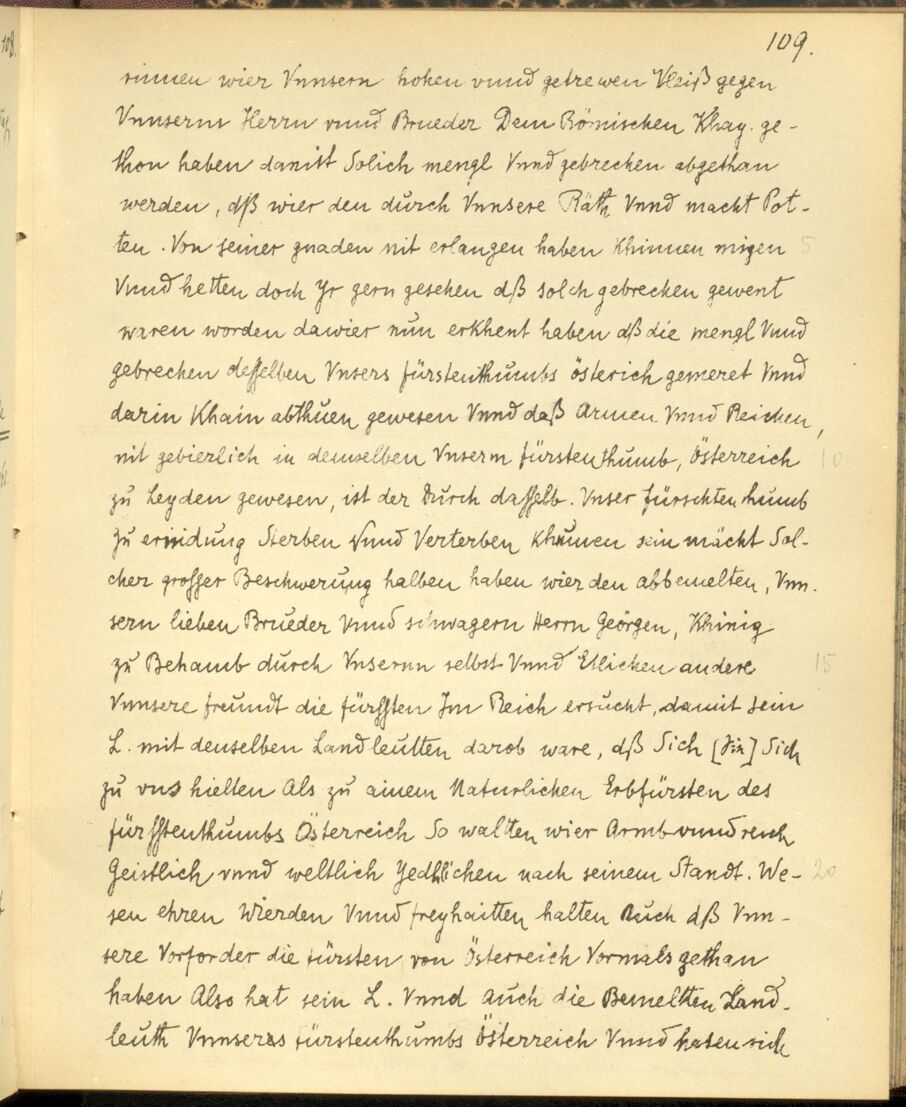 109.
rinnen wier Vnnsern hohen vnnd getrewen Vleiß gegen
Vnnserm Herrn vnnd Brueder Dem Römischen Khay. ge-
thon haben damitt Solich mengl Vnnd gebrechen abgethan
werden, dß wier den durch Vnnsere Räth Vnnd macht Pot-
ten. Von seiner gnaden nit erlangen haben khinnen migen 5
Vnnd hetten doch Yr gern gesehen dß solch gebrechen gewent
waren worden dawier nun erkhent haben dß die mengl Vnnd
gebrechen desselben Vnsers fürstenthumbs österich gemeret Vnnd
darin Khain abthuen gewesen Vnnd daß Armen Vnnd Reichen,
nit gebierlich in demselben Vnserm fürstenthumb, Österreich 10
zu Leyden gewesen, ist der Durch dasselb. Vnser fürschtenthumb
zu Sterben Vnnd Verterben khumen sein mächt Sol-
cher grosser Beschwerung halben haben wier den abbemelten, Vnn-
sern lieben Brueder Vnnd schwagern Herrn Geörgen, Khinig
zu Behamb durch Vnsernn selbst Vnnd Etlichen andere 15
Vnnsere freundt die fürssten Jm Reich ersucht, damit sein
L. mit denselben Landleutten darob ware, dß Sich Sich
zu vns hielten Als zu ainem Naturlichen Erbfürsten des
fürsstenthumbs Österreich So walten wier Armb vnnd reich
Geistlich vnnd weltlich Yedlichen nach seinem Standt. We- 20
sen ehren Wierden Vnnd freyhaitten halten Auch dß Vnn-
sere Vorforder die fürsten von Österreich Vormals gethan
haben Also hat sein L. Vnnd Auch die Bemeltten Land-
leuth Vnnsers fürstenthumbs Österreich Vnnd haben sich